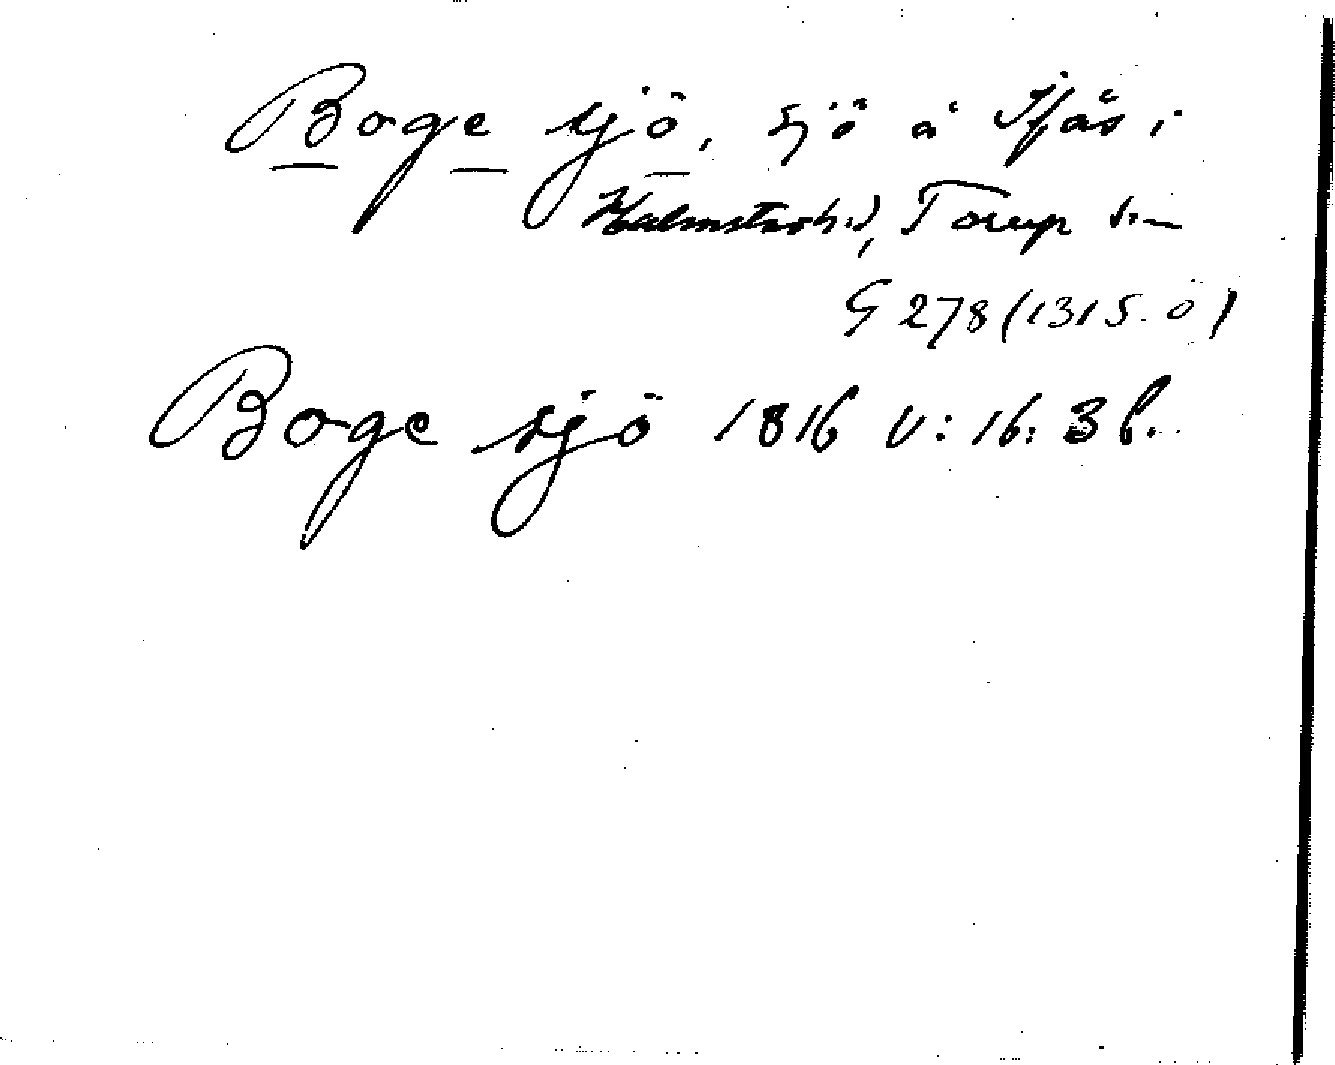 Boge sjö, sjö å Yfås i
Halmstads hd, Torup sn
G 278 (1315. ö)
Boge sjö 1816 V: 16: 3 b.